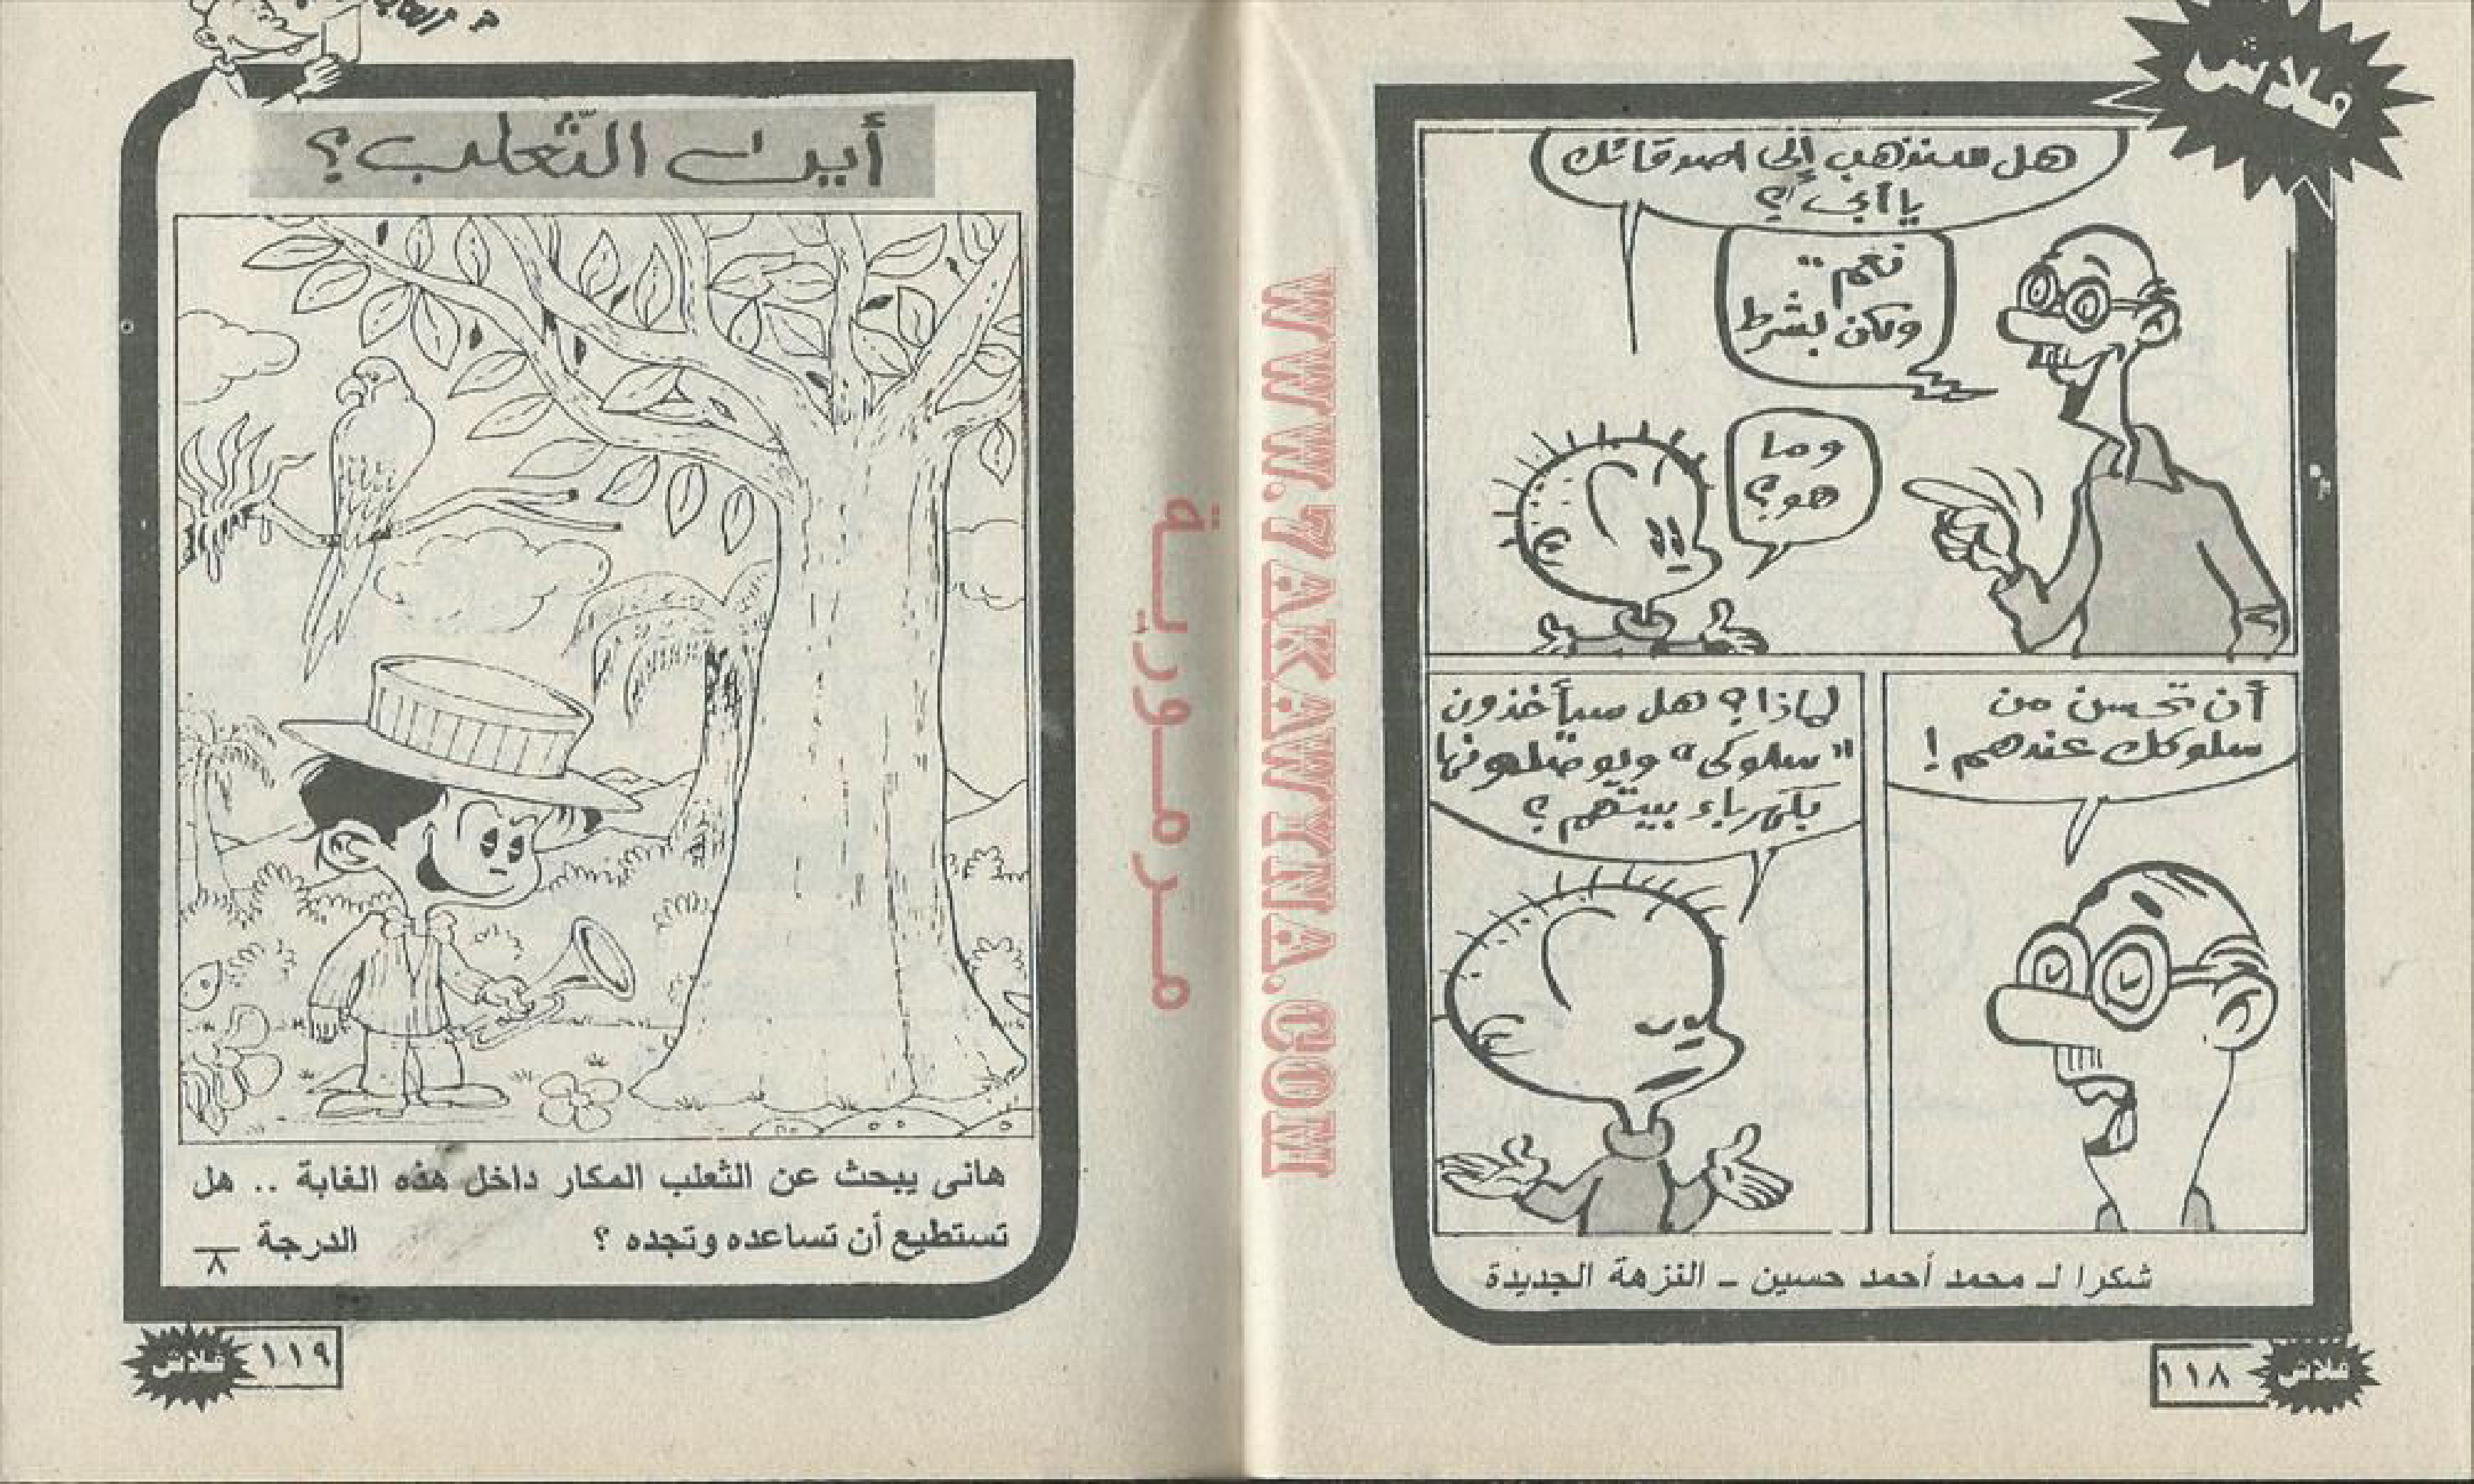 فلاش
هل ستذهب إلى اصدقائك
يا أبى ؟
نعم ..
ولكن بشرط
وما
هو ؟
أن تحسن من
سلوكك عندهم !
لماذا ؟ هل سيأخذون
"سلوكى" ويوصلونها
بكهرباء بيتهم ؟
شكرا لـ محمد أحمد حسين - النزهة الجديدة
١١٨
فلاش
WWW.7AKAWYNA.COM
مرمورية
أين الثّعلب ؟
هانى يبحث عن الثعلب المكار داخل هذه الغابة .. هل
تستطيع أن تساعده وتجده ؟ الدرجة ٨
١١٩
فلاش